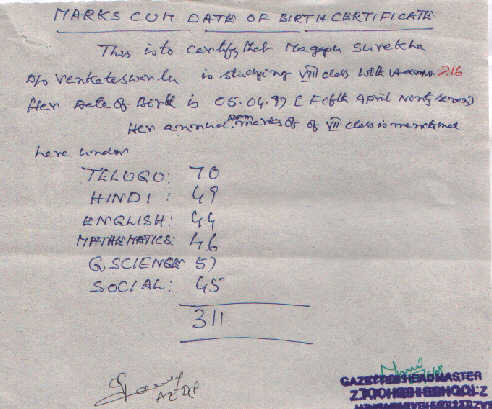 MARKS CUM DATE OF BIRTH CERTIFICATE
This is to certify that Magapu Surekha
D/o Venkateswarlu is studying VIII class with Ad.no 216
Her Date of Birth is 05.04.97 (Fifth April Ninty Seven)
Her annual exam marks of VII class is mentioned
here under
TELUGU: 70
HINDI: 49
ENGLISH: 44
MATHEMATICS: 46
G.SCIENCE: 57
SOCIAL: 45
311
GAZETTED HEADMASTER